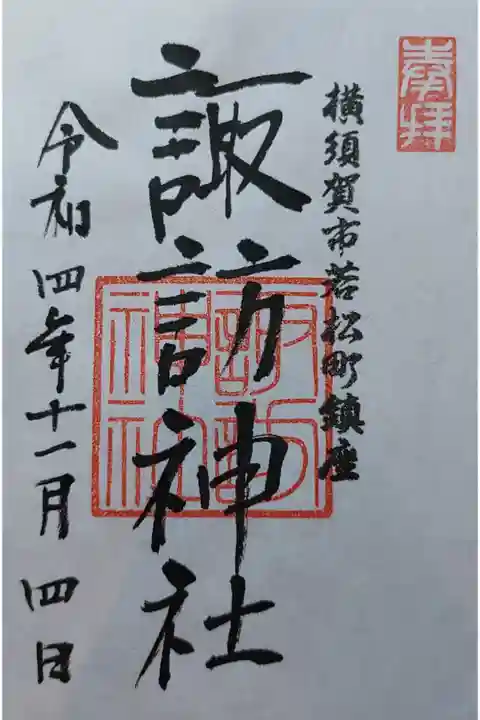 奉拝
横須賀市若松町鎮座
諏訪神社
諏訪神社
令和四年十一月四日